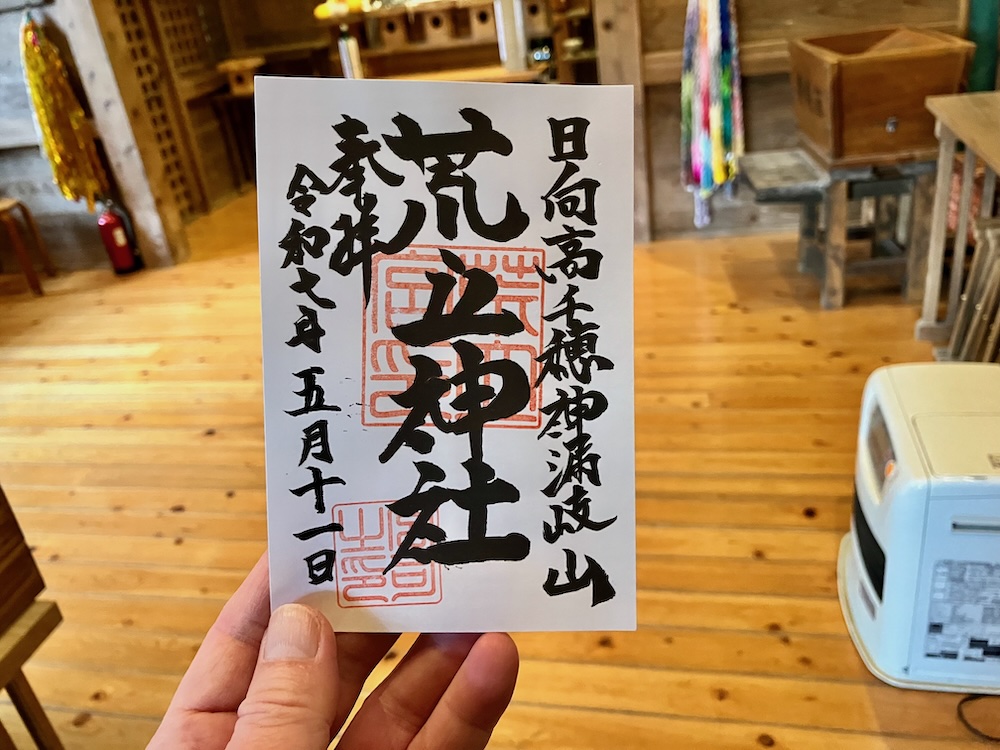 日向高千穂神漏岐山
荒立神社
奉拝
令和七年 五月十一日